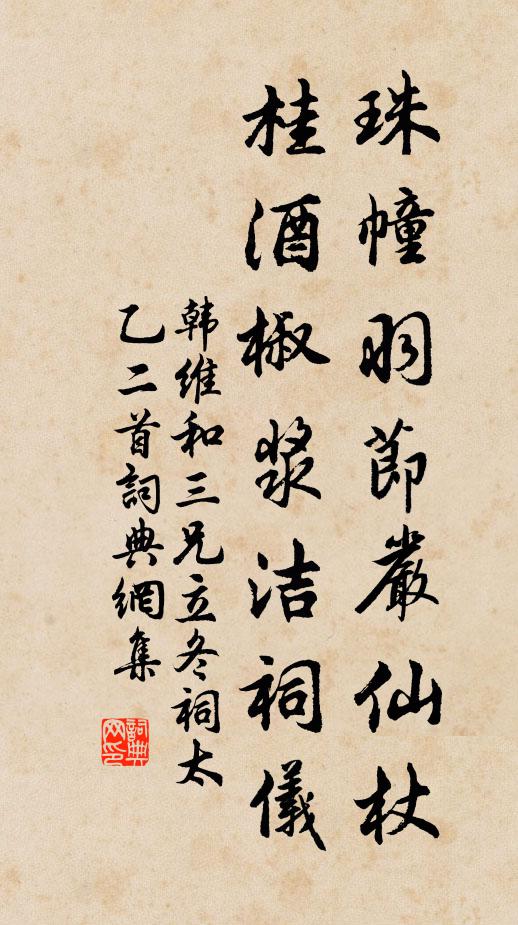 珠幢羽節嚴仙杖
桂酒椒漿洁祠儀
韩維和三兄立冬祠太
乙二首詞典網集
詞典网印